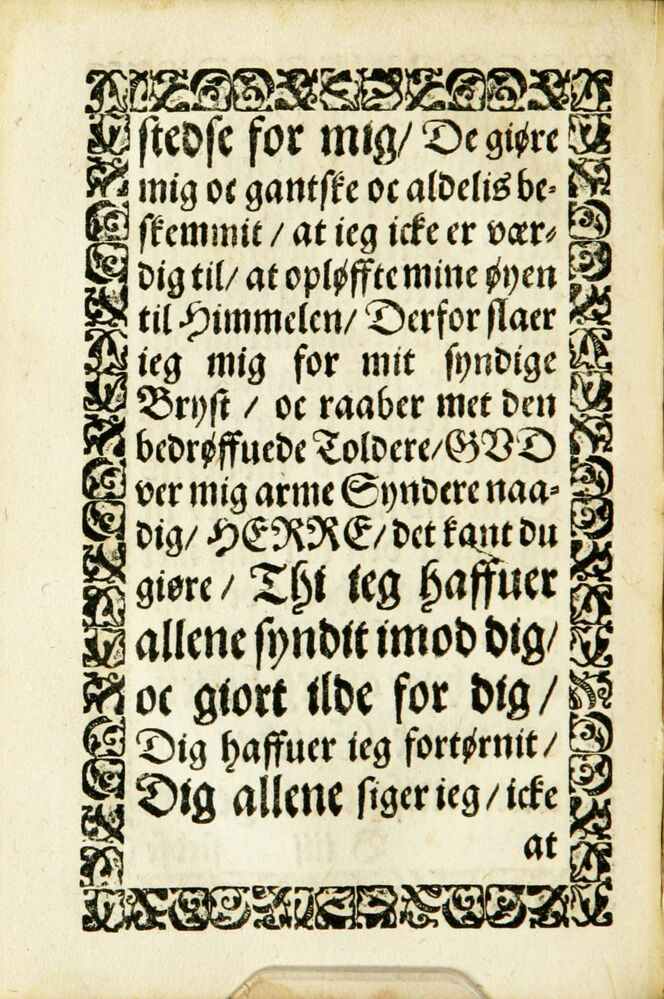 stedse for mig/ De giøre
mig oc gantske oc aldelis be-
skemmit / at ieg icke er vær-
dig til/ at opløffte mine øyen
til Himmelen/ Derfor slaer
ieg mig for mit syndige
Bryst / oc raaber met den
bedrøffuede Toldere/ GVD
ver mig arme Syndere naa-
dig/ HERRE/ det kant du
giøre / Thi ieg haffuer
allene syndit imod dig/
oc giort ilde for dig /
Dig haffuer ieg fortørnit /
Dig allene siger ieg / icke
at